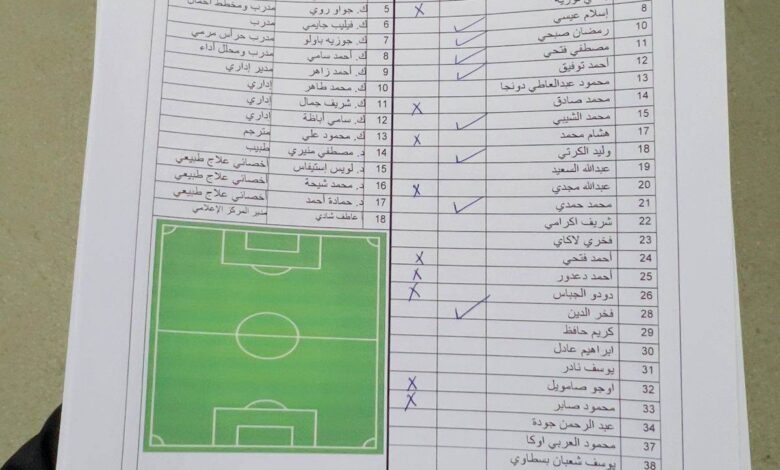 8 إسلام عيسي
10 رمضان صبحي
11 مصطفي فتحي
12 أحمد توفيق
13 محمود عبدالعاطي دونجا
14 محمد صادق
15 محمد الشيبي
17 هشام محمد
18 وليد الكرتي
19 عبدالله السعيد
20 عبدالله مجدي
21 محمد حمدي
22 شريف اكرامي
23 فخري لاكاي
24 أحمد فتحي
25 أحمد دعدور
26 دودو الجباس
28 فخر الدين
29 كريم حافظ
30 ابراهيم عادل
31 يوسف نادر
32 اوجو صامويل
33 محمود صابر
34 عبد الرحمن جودة
37 محمود العربي اوكا
38 يوسف شعبان بسطاوي
5 ك. جواو روي مدرب ومخطط أحمال
6 ك. فيليب جايمي مدرب
7 ك. جوزيه باولو مدرب حراس مرمي
8 ك. أحمد سامي مدرب ومحلل أداء
9 ك. أحمد زاهر مدير إداري
10 ك. محمد طاهر إداري
11 ك. شريف جمال إداري
12 ك. سامي أباظة إداري
13 ك. محمود علي مترجم
14 د. مصطفي منيري طبيب
15 د. لويس إستيفاس أخصائي علاج طبيعي
16 د. محمد شيحة أخصائي علاج طبيعي
17 د. حمادة أحمد أخصائي علاج طبيعي
18 عاطف شادي مدير المركز الإعلامي